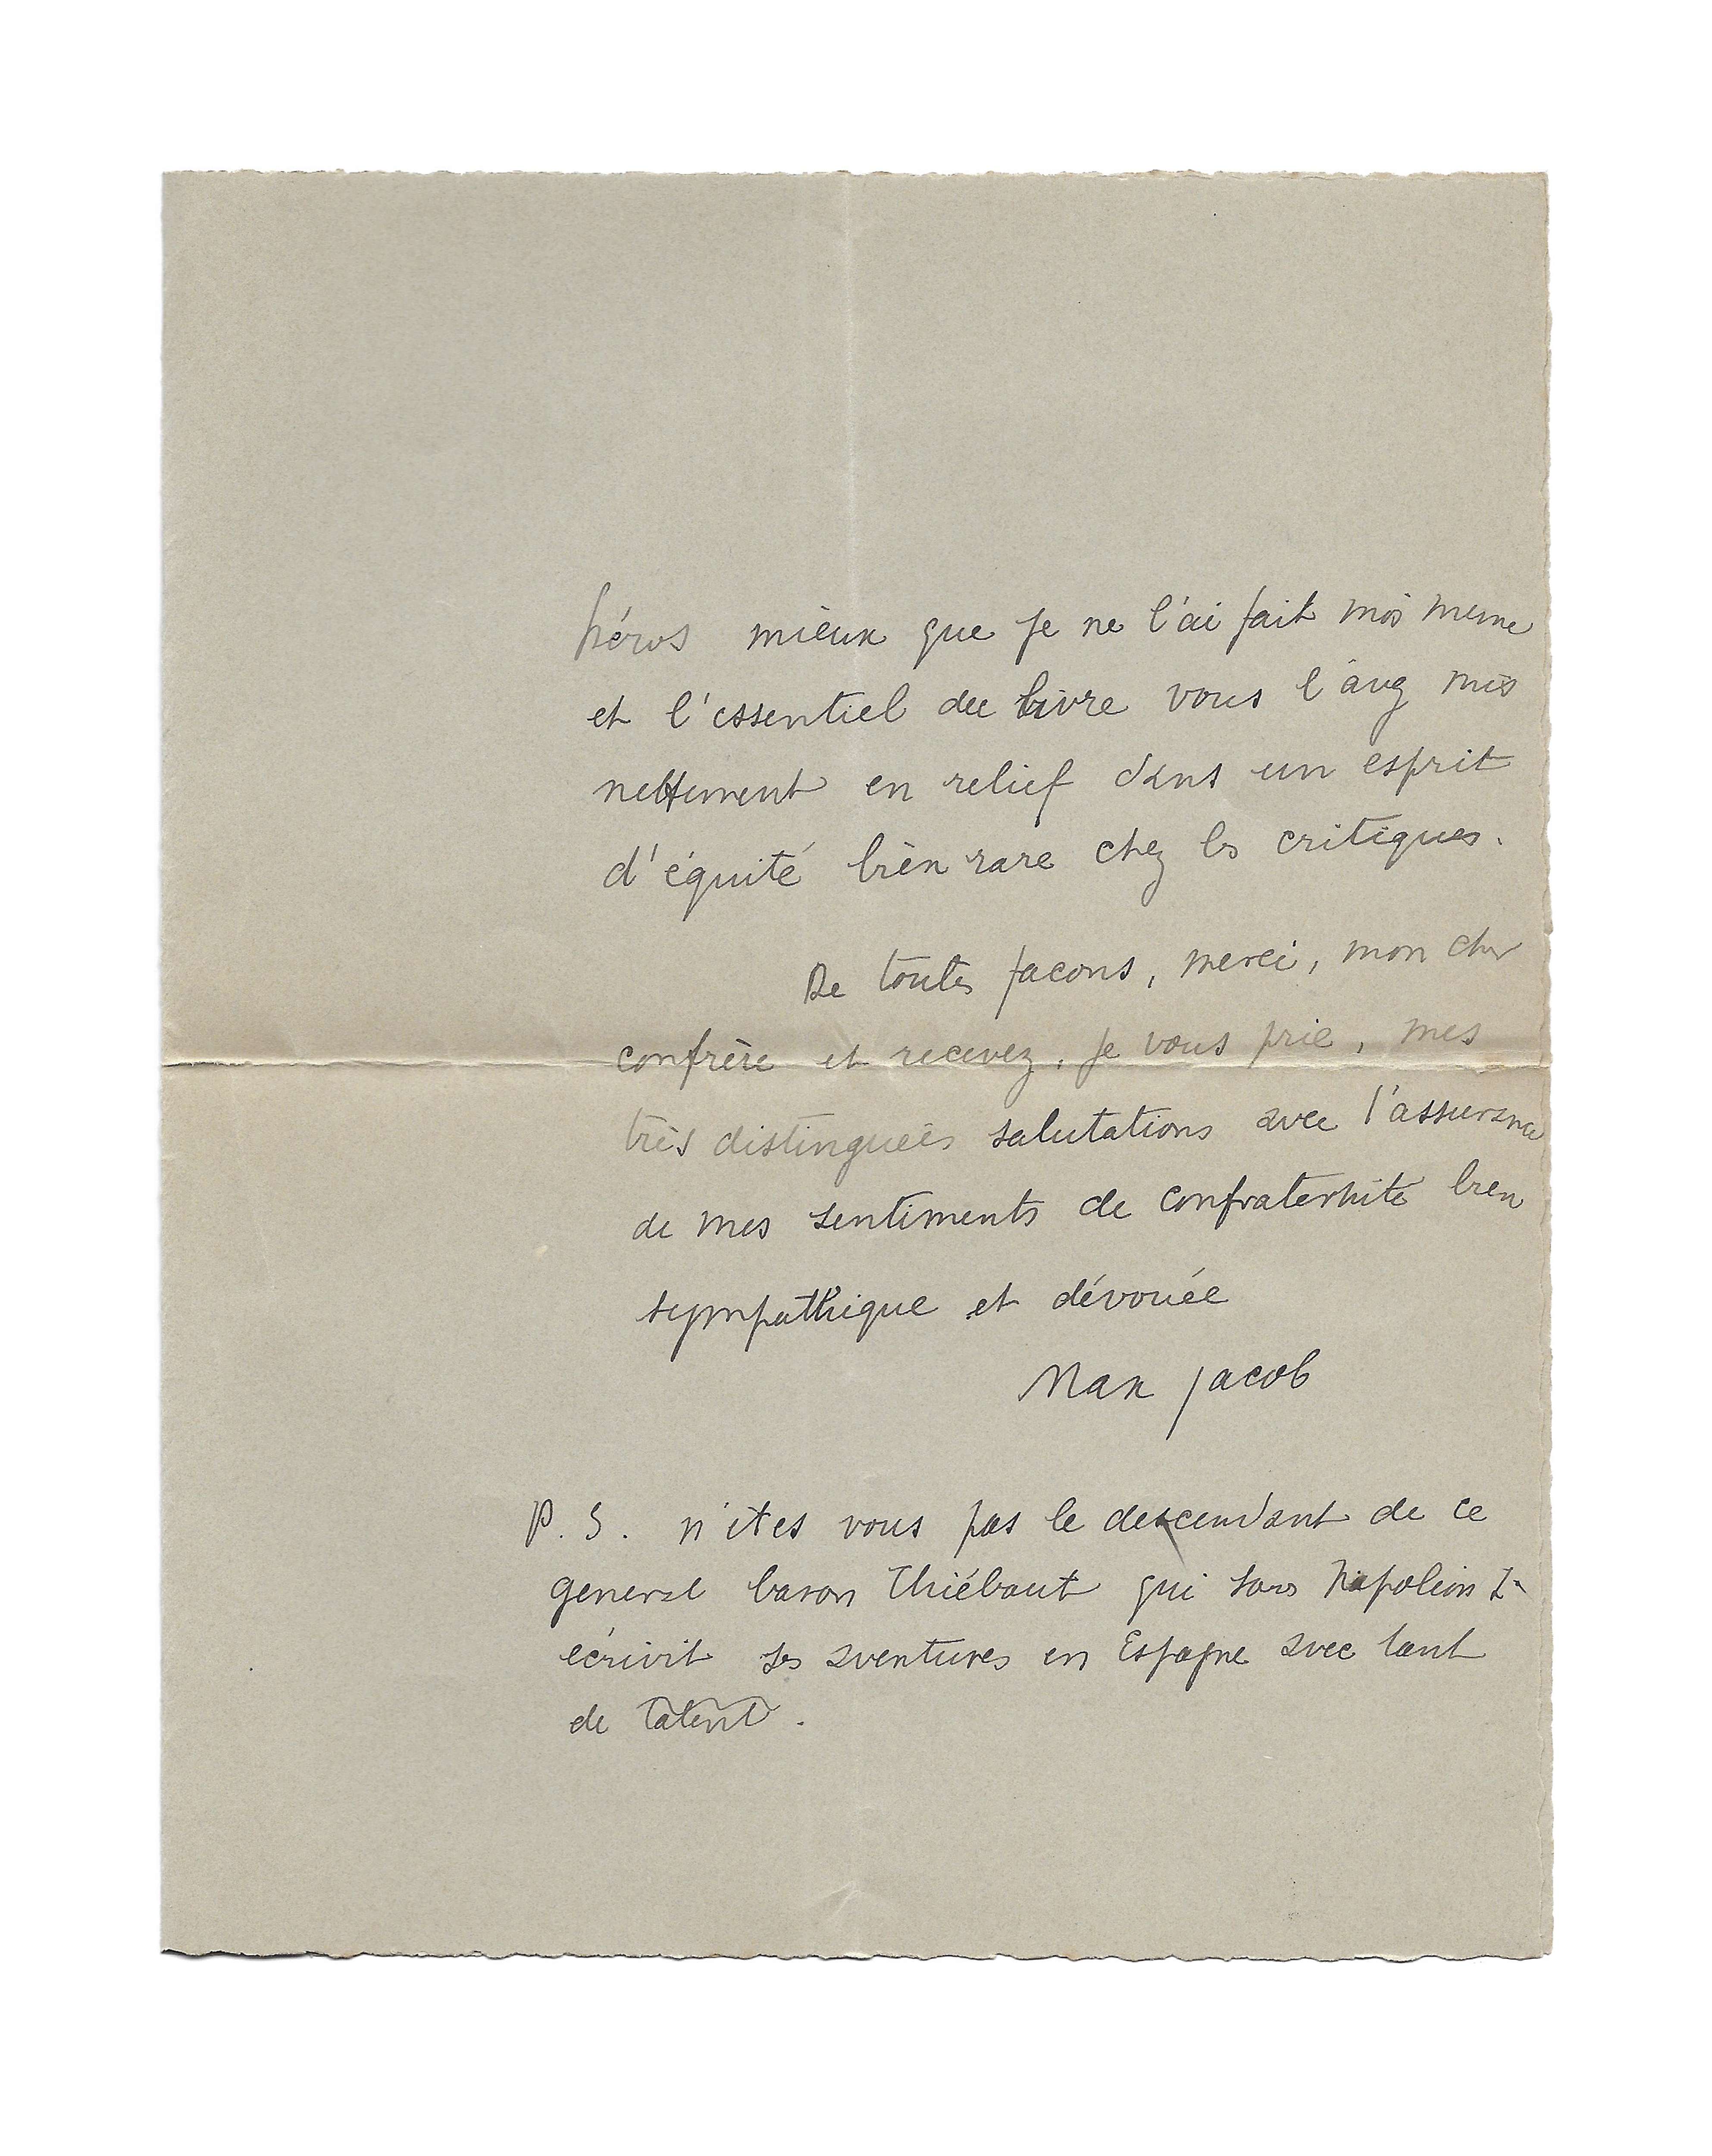 héros mieux que je ne l'ai fait moi meme
et l'essentiel du livre vous l'avez mis
nettement en relief dans un esprit
d'équité bien rare chez les critiques.
De toutes facons, merci, mon cher
confrère et recevez, je vous prie, mes
très distinguées salutations avec l'assurance
de mes sentiments de confraternité bien
sympathique et dévouée
Max Jacob
P. S. n'êtes vous pas le descendant de ce
general baron Thiébaut qui sous Napoléon Ier
écrivit ses aventures en Espagne avec tant
de talent.